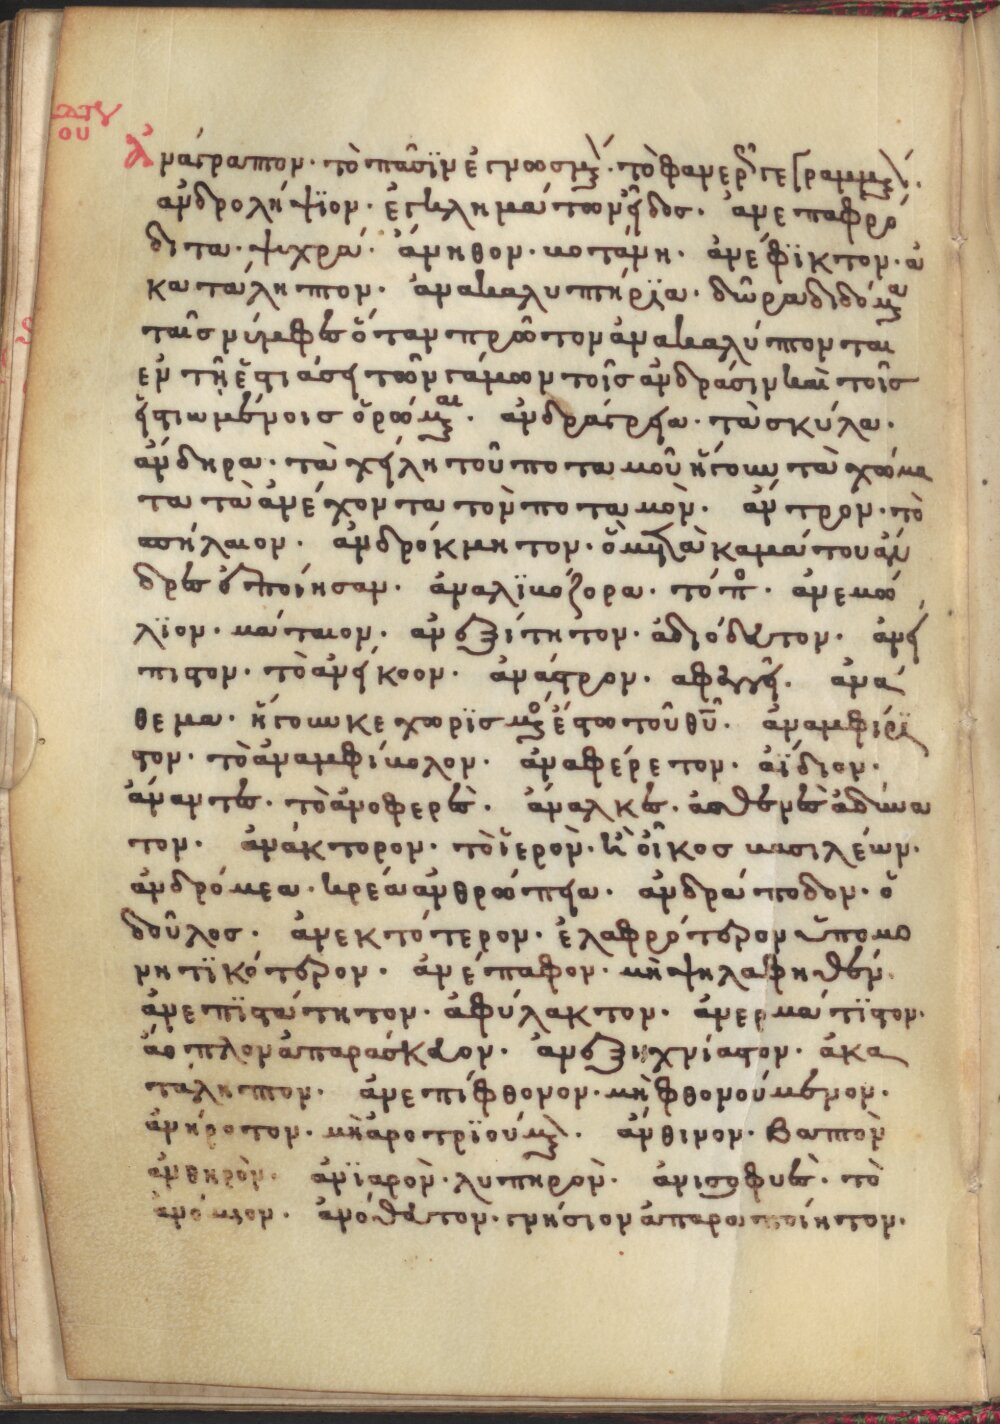 ου
Ἀνάγραπτον· τὸ πᾶσϊν ἐγνωσμ· τὸ φανερ γεγραμμ·
ἀνδρολήψϊον· ἐγκλημάτων εἶδος· ἀνεπαφρό
διτα· ψυχρά· ἄνηθον· βοτάνη· ἀνέφϊκτον· ἀ
κατάληπτον· ἀνακαλυπτήρϊα· δῶρα διδόμ
ταῖς νύμφαις ὅταν πρῶτον ἀνακαλύπτονται
ἐν τῇ ἑστιάσει τῶν γάμων τοῖς ἀνδράσιν καὶ τοῖς
ἑστιωμένοις ὁρώμαι· ἀνδράγρεια· τὰ σκύλα·
ἄνδηρα· τὰ χείλη τοῦ ποταμοῦ ἤγουν τὰ χώμα
τα τὰ ἀνέχοντα τὸν ποταμὸν· ἄντρον· τὸ
σπήλαιον· ἀνδρόκμητον· ὃ μετὰ καμάτου ἄν
δρες ἐποίησαν· ἀναλϊκόζορα· τό π· ἀνεμώ
λϊον· μάταιον· ἀνεξίτητον· ἀδιόδευτον· ἀνή
πιστον· τὸ ἀνήκοον· ἀνάστρον· ἀφεγγῆ· ἀνά
θεμα· ἤγουν κεχωρϊσμ ἔστω τοῦ θυ· ἀναμφίρϊ
στον· τὸ ἀναμφίβολον· ἀναφέρετον· ἀΐδιον·
ἀνάντες· τὸ ἀνωφερές· ἄναλκες· ἀσθενὲς ἀδύνα
τον· ἀνάκτορον· τὸ ἱερὸν· καὶ οἶκος βασιλέων·
ἀνδρόμεα· κρέα ἀνθρώπεια· ἀνδράποδον· ὁ
δοῦλος· ἀνεκτότερον· ἐλαφρότερον ὑπομο
νητϊκότερον· ἀνέπαφον· μὴ ψηλαφηθέν·
ἀνεπϊστάτητον· ἀφύλακτον· ἀνερμάτϊστον·
ἄοπλον ἀπαράσκευον· ἀνεξιχνίαστον· ἀκα
τάληπτον· ἀνεπίφθονον· μὴ φθονούμενον·
ἀνήροτον· μὴ ἀροτρϊούμ· ἄνθινον· βαπτὸν
ἀνθηρὸν· ἀνϊαρὸν· λυπηρὸν· ἀνισοφυὲς· τὸ
ἀνόμοιον· ἀνόθευτον· γνήσιον ἀπαραποίητον·